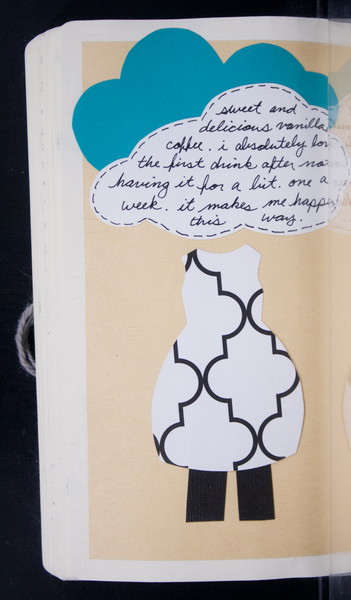 sweet and
delicious vanilla
coffee. i absolutely lov
the first drink after no
having it for a bit. one a
week. it makes me happ
this way.